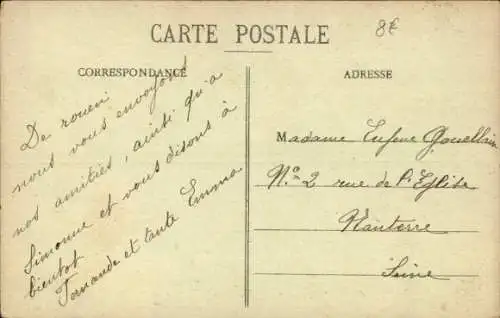 CARTE POSTALE
8€
CORRESPONDANCE
De rouen
nous vous envoyons
nos amitiés, ainsi qu'a
Simonne et vous disons à
bientot
et tante Emma
ADRESSE
Madame Eugene
N° 2 rue de l'Eglise
Nanterre
Seine